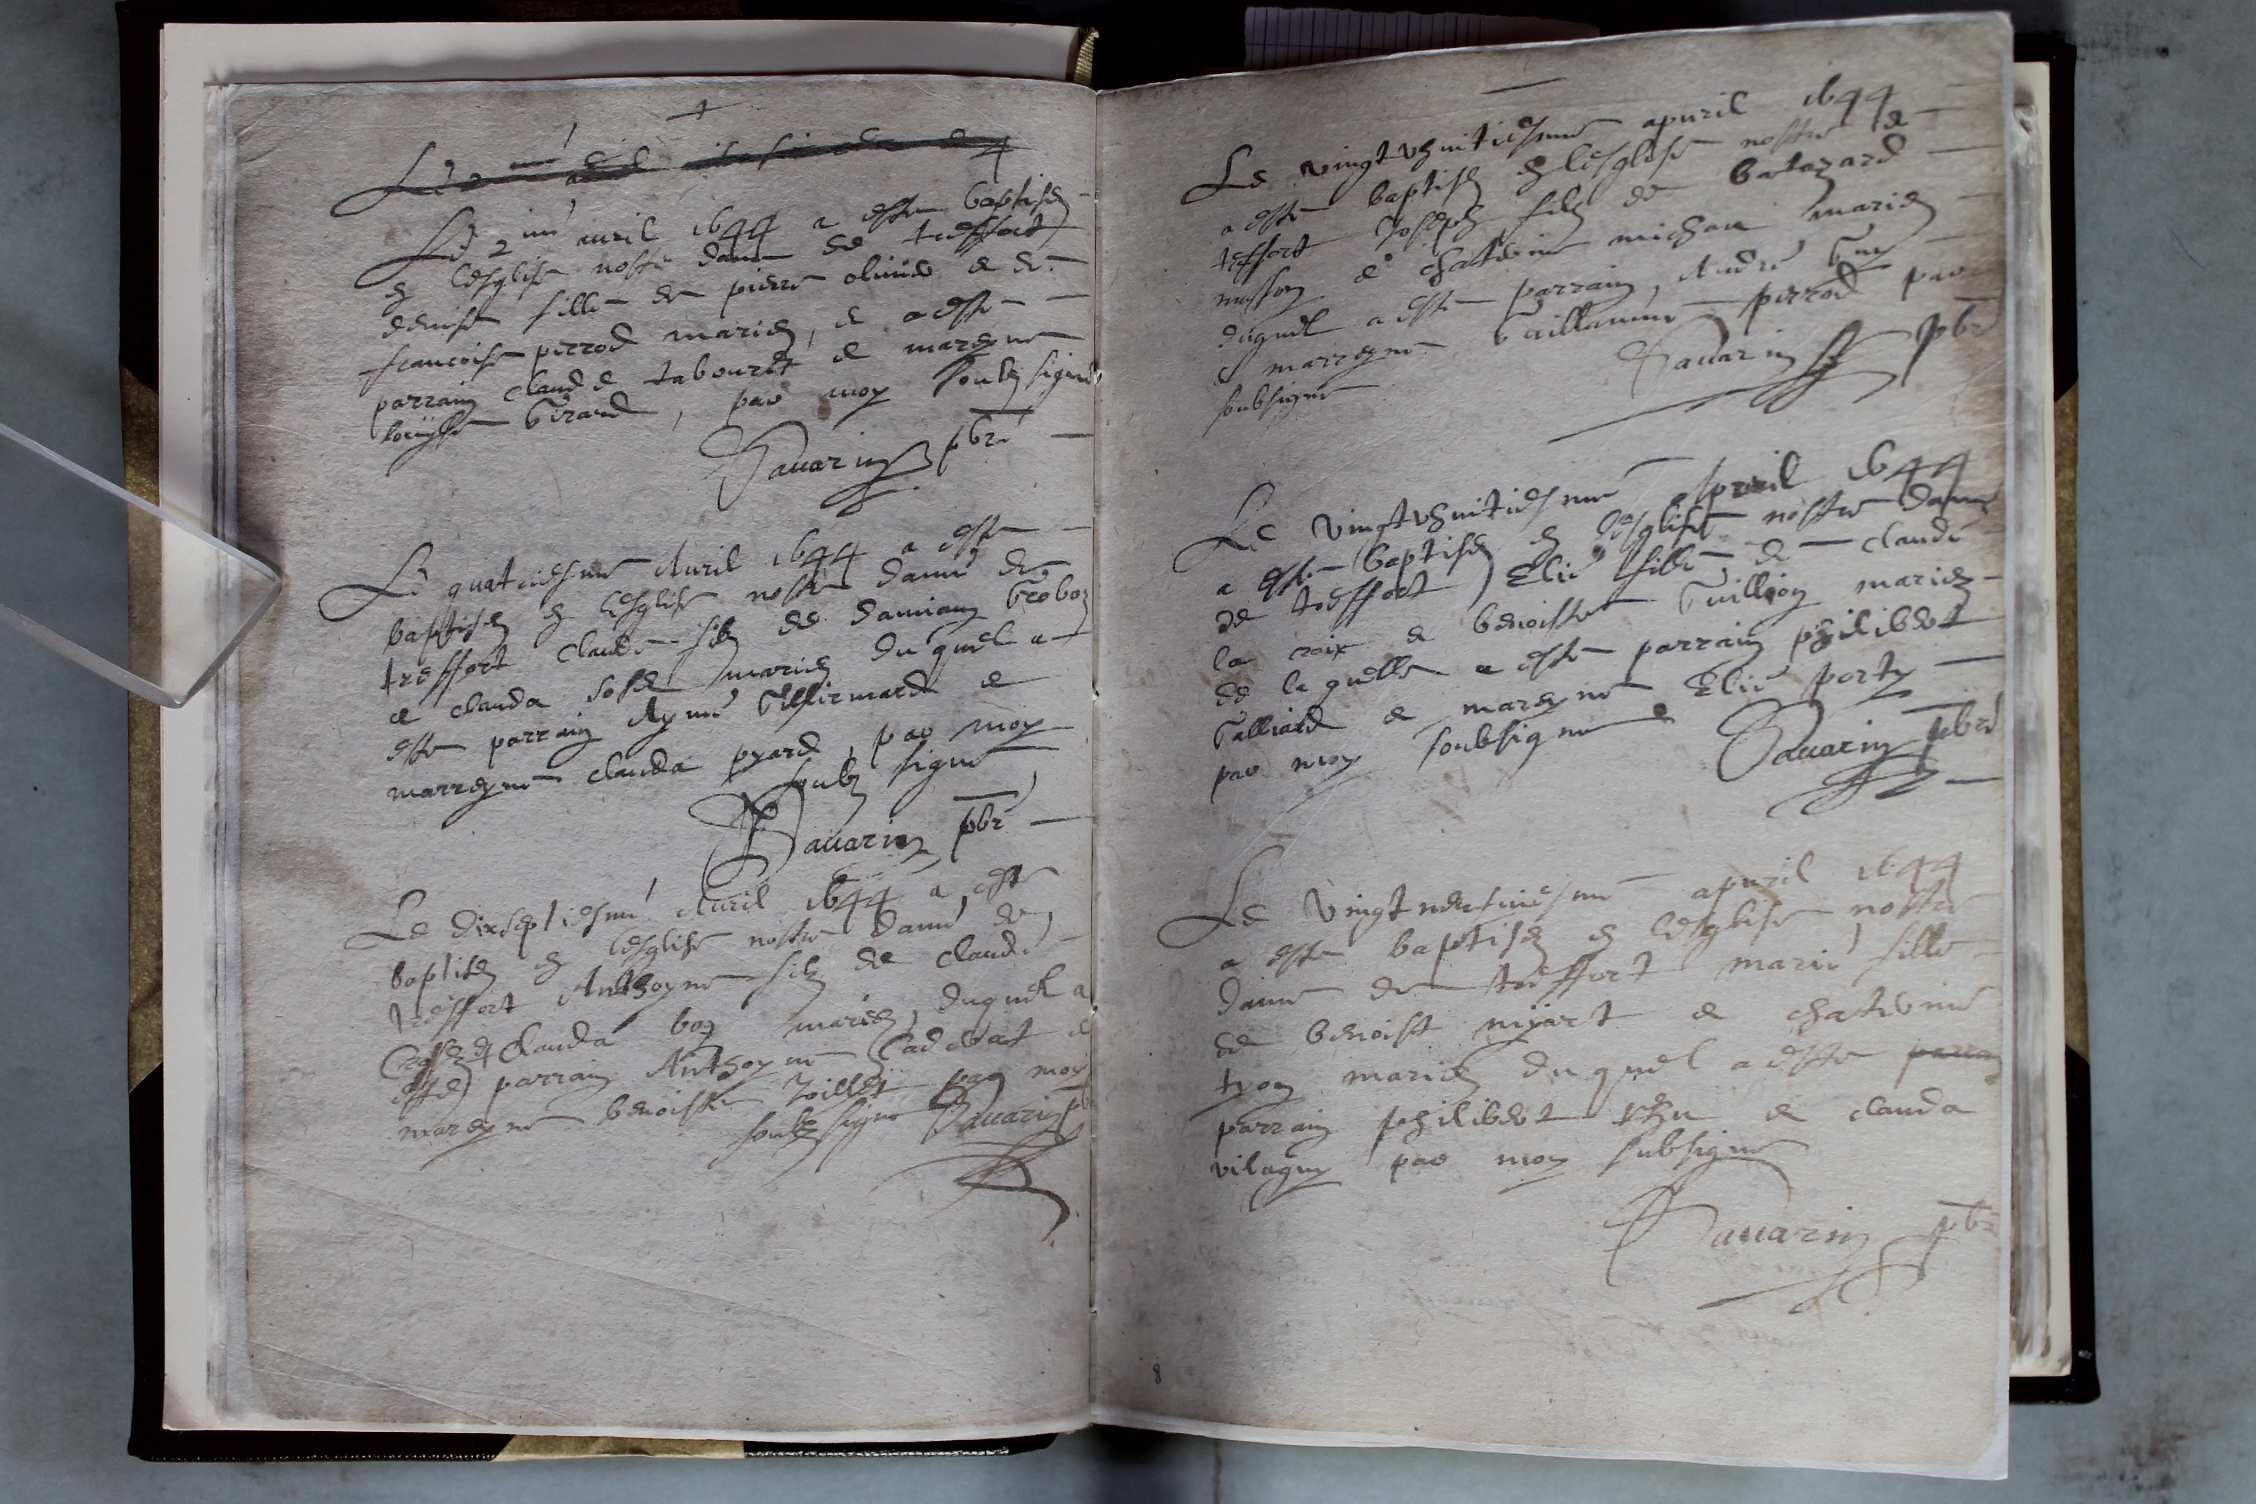 Le 2me avril 1644 a este baptisee
en lesglise nostre dame de treffort
denise fille de pierre olivier et de
francoise perrod mariez, et a este
parrain claude tabouret et mareyne
louyse Girard, par moy soubz signé
Savarin pbre
Le quatriesme Avril 1644 a este
baptisez en lesglise nostre dame de
treffort claude filz de damian
et clauda mariez duquel a
este parrain Aymé et
marreyne clauda pyard, par moy
soubz signé
Savarin pbre
Le dixseptiesme Avril 1644 a este
baptisez en lesglise nostre dame de
treffort Anthoyne filz de claude
et clauda boz mariez, duquel a
este parrain Anthoyne et
mareyne benoiste Joillet par moy
soubz signe Savarin pbre
Le vingt uhuitiesme apvril 1644
a este baptisez en lesglise nostre de
treffort Joseph filz de batazard
masson et chaterine michon mariez
duquel a este parrain, André
et marreyne Guillaume perrod par
soubsigne Savarin pbre
Le vingtuhuitiesme Apvril 1644
a este baptisez en lesglise nostre dame
de treffort Elie fille de claude
la croix et benoiste Guillion mariez
de laquelle a este parrain philibert
Galliard et mareyne Elie porty
par moy soubsigne Savarin pbre
Le vingt neufviesme apvril 1644
a este baptisez en lesglise nostre
dame de treffort marie fille
de benoist nyzart et chaterine
tyon mariez duquel a este parrain
parrain philibert et clauda
vilagny par moy subsigne
Savarin pbre
8